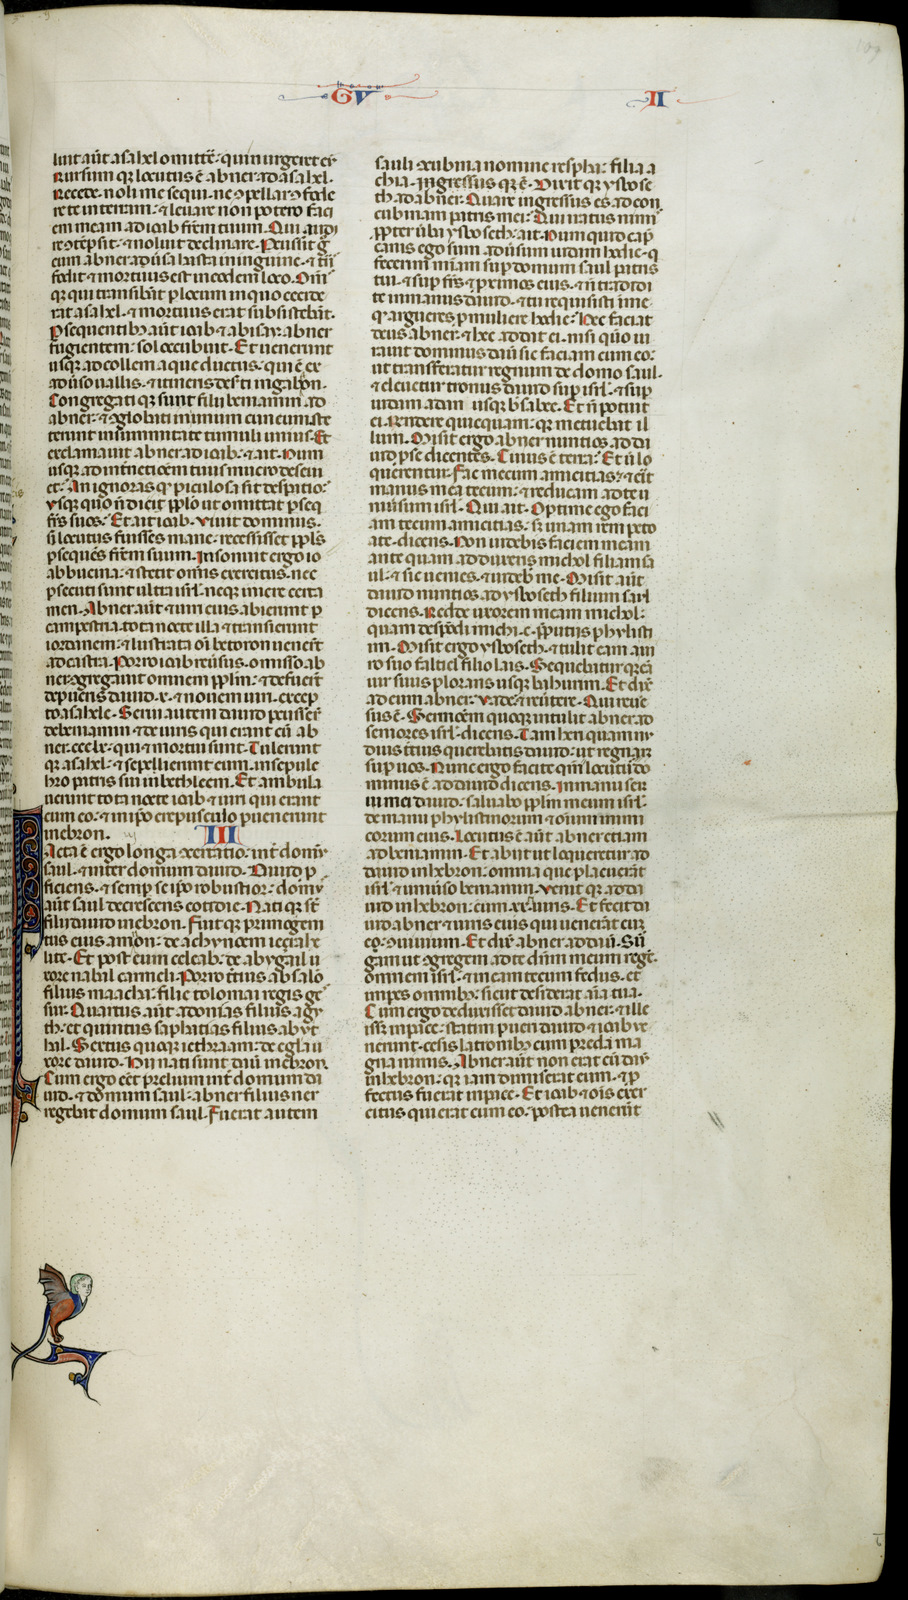 GV
II
luit aut asahel omittere quin urgeret eum
Rursum que locutus e abner ad asahel.
Recede noli me sequi ne compellar confode
re te in terram et levare non potero faci
em meam ad ioab frem tuum. Qui audi
re contepsit et noluit declinare. Percussit g
eum abner aduersa hasta in inguine et trans
fodit et mortuus est in eodem loco. Omnes
que qui transibant p locum in quo cecide
rat asahel et mortuus erat subsistebant.
Psequentibus aut ioab et abisay abner
fugientem sol occubuit. Et uenerunt
usque ad collem aque ductus qui e ex
aduerso uallis et itineris deserti in gabaon.
Congregati que sunt filii beniamin ad
abner et conglobati in unum cuneum ste
terunt in summitate tumuli unius. Et
exclamauit abner ad ioab et ait. Num
usque ad internetionem tuus mucro deseui
et. An ignoras quod periculosa sit desperatio.
Usque quo n dicis pplo ut omittat perseq
frs suos. Et ait ioab. Viuit dominus.
si locutus fuisses mane recessisset ppls
psequens frem suum. Insonuit ergo io
ab bucina et stetit omnis exercitus nec
persecuti sunt ultra isrl neque iniere certa
men. Abner aut et uiri eius abierunt p
campestria tota nocte illa et transierunt
iordanem et lustrata omni betoron uenerunt
ad castra. Porro ioab reuersus omisso ab
ner congregauit omnem pplm et defuerunt
de pueris dauid .x. et nouem uiri excep
to asahele. Serui autem dauid percusserunt
de beniamin et de uiris qui erant cum ab
ner ccc lx qui et mortui sunt. Tulerunt
que asahel et sepelierunt eum in sepulc
hro patris sui in bethleem. Et ambula
uerunt tota nocte ioab et uiri qui erant
cum eo et in ipso crepusculo peruenerunt
in ebron.
III
Facta e ergo longa concertatio inter domum
saul et inter domum dauid. Dauid p
ficiens et semper se ipso robustior domus
aut saul decrescens cottidie. Nati que sunt
filii dauid in ebron. Fuit que primogeni
tus eius amon de achynoem iezrahe
lite. Et post eum celeab de abygail u
xore nabal carmeli. Porro tertius absalo
filius maacha filie tolomai regis ge
sur. Quartus aut adonias filius agy
th et quintus saphatias filius abyt
hal. Sextus quoque iethraam de egla u
xore dauid. Hii nati sunt dauid in ebron.
Cum ergo esset prelium inter domum da
uid et domum saul abner filius ner
regebat domum saul. Fuerat autem
sauli concubina nomine respha filia a
chia. Ingressus que e. Dixit que ysbose
th ad abner. Quare ingressus es ad con
cubinam patris mei. Qui iratus nimis
propter uerba ysboseth ait. Num quid caput
canis ego sum aduersum iudam hodie q
fecerim miam super domum saul patris
tui et super frs et proximos eius et n tradidi
te in manus dauid et tu requisisti in me
quod argueres pro muliere hodie. Hec faciat
deus abner et hec addat ei nisi quo iu
rauit dominus dauid sic faciam cum eo
ut transferatur regnum de domo saul
et eleuetur tronus dauid super isrl et super
iudam a dan usque bersabee. Et n potuit
ei respondere quicquam que metuebat il
lum. Misit ergo abner nuntios ad da
uid pro se dicentes. Cuius e terra. Et ut lo
querentur. Fac mecum amicitias et erit
manus mea tecum et reducam ad te u
niuersum isrl. Qui ait. Optime ego faci
am tecum amicitias sed unam rem peto
a te dicens. Non uidebis faciem meam
ante quam adduxeris michol filiam sa
ul et sic uenies et uidebis me. Misit aut
dauid nuntios ad ysboseth filium saul
dicens. Redde uxorem meam michol
quam despondi michi c. preputiis phylisti
im. Misit ergo ysboseth et tulit eam a ui
ro suo faltiel filio lais. Sequebatur que eam
uir suus plorans usque bahurim. Et dixit
ad eum abner. Vade et reuertere. Qui reuer
sus e. Sermonem quoque intulit abner ad
seniores isrl dicens. Tam heri quam nu
dius tertius querebatis dauid ut regnaret
super uos. Nunc ergo facite quoniam locutus e do
minus ad dauid dicens. In manu ser
ui mei dauid saluabo pplm meum isrl
de manu phylistinorum et omnium inimi
corum eius. Locutus e aut abner etiam
ad beniamin. Et abiit ut loqueretur ad
dauid in hebron omnia que placuerant
isrl et uniuerso beniamin. Venit que ad da
uid in hebron cum .xx. uiris. Et fecit da
uid abner et uiris eius qui uenerant cum
eo conuiuium. Et dixit abner ad dauid. Sur
gam ut congregem ad te dnm meum regem
omnem isrl et ineam tecum fedus et
imperes omnibus sicut desiderat aia tua.
Cum ergo deduxisset dauid abner et ille
isset in pace statim pueri dauid et ioab ue
nerunt cesis latronibus cum preda ma
gna nimis. Abner aut non erat cum dauid
in hebron que iam dimiserat eum et p
fectus fuerat in pace. Et ioab et ois exer
citus qui erat cum eo postea uenerunt